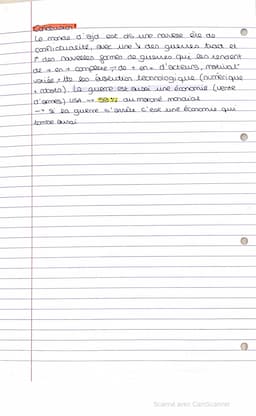 Conclusion
Le monde d'ajd est ds une nouvelle ère de
conflictualité, avec une ↘ des guerres trad et
↗ des nouvelles formes de guerres qui les rendent
de + en + complexe → de + en + d'acteurs, motivat°
variée + les évolution technologique (numérique
+ robots). La guerre est aussi une économie (vente
d'armes) USA → 58% du marché mondial
→ si la guerre s'arrête c'est une économie qui
tombe aussi
Scanné avec CamScanner